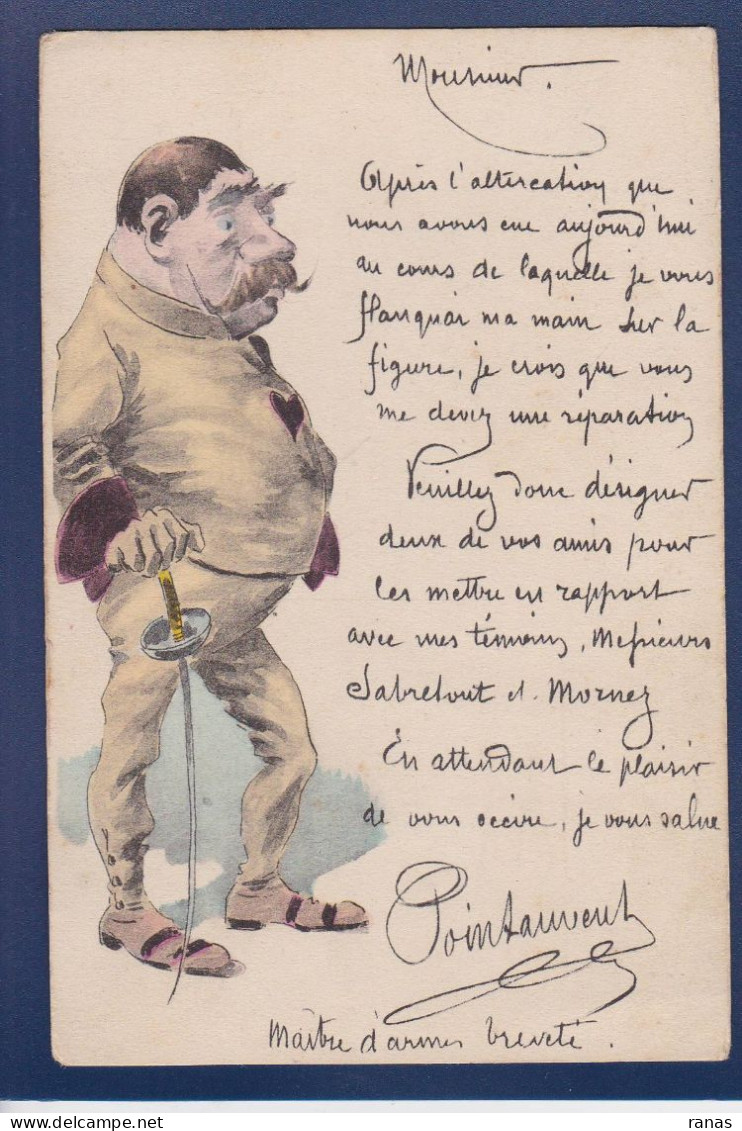 Monsieur.
Après l'altercation que
nous avons eue aujourd'hui
au cours de laquelle je vous
flanquai ma main sur la
figure, je crois que vous
me devez une réparation
Veuillez donc désigner
deux de vos amis pour
les mettre en rapport
avec mes témoins, Messieurs
Sabretout et Mornez
En attendant le plaisir
de vous occire, je vous salue
Pointauvent
Maître d'armes breveté.
ranas